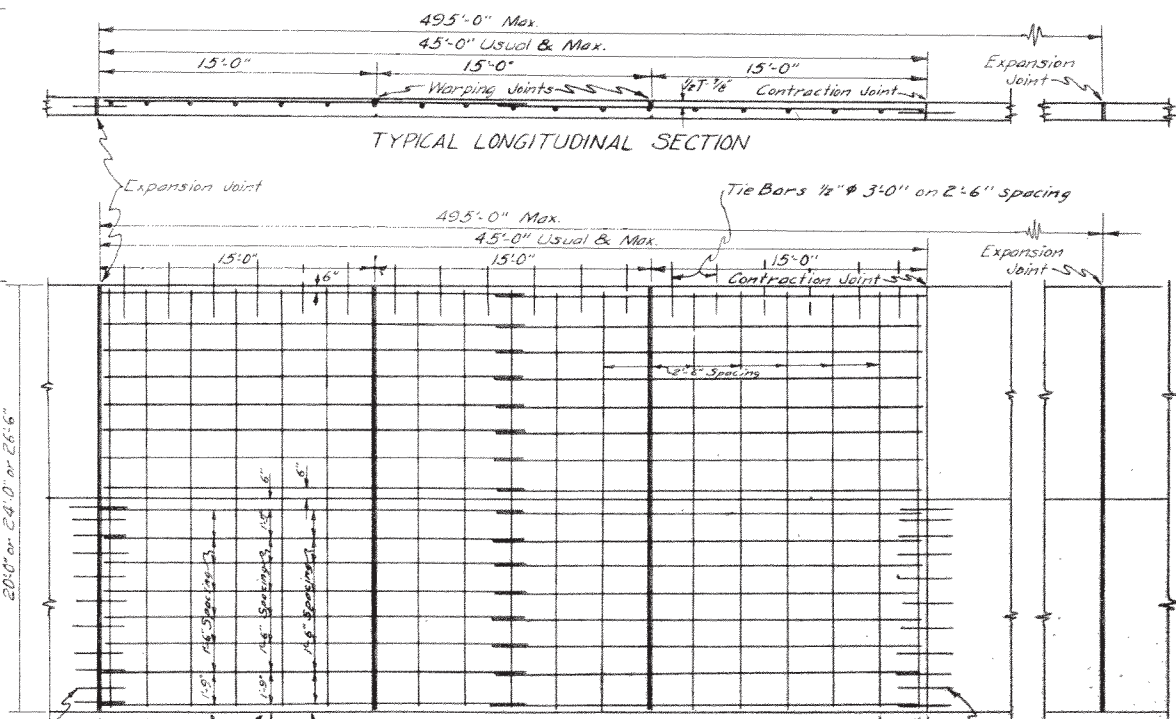 495'-0" Max.
45'-0" Usual & Max.
15'-0" 15'-0" 15'-0"
Expansion
Joint
Warping Joints
½T-⅞"
Contraction Joint
TYPICAL LONGITUDINAL SECTION
Expansion Joint
Tie Bars ½"φ 3'-0" on 2'-6" spacing
495'-0" Max.
45'-0" Usual & Max.
15'-0" 15'-0" 15'-0"
Expansion
Joint
6"
Contraction Joint
2'-6" Spacing
20'-0" or 24'-0" or 26'-6"
6"
6"
1'-6" Spacing
1'-6" Spacing
1'-6" Spacing
1'-9"
1'-9"